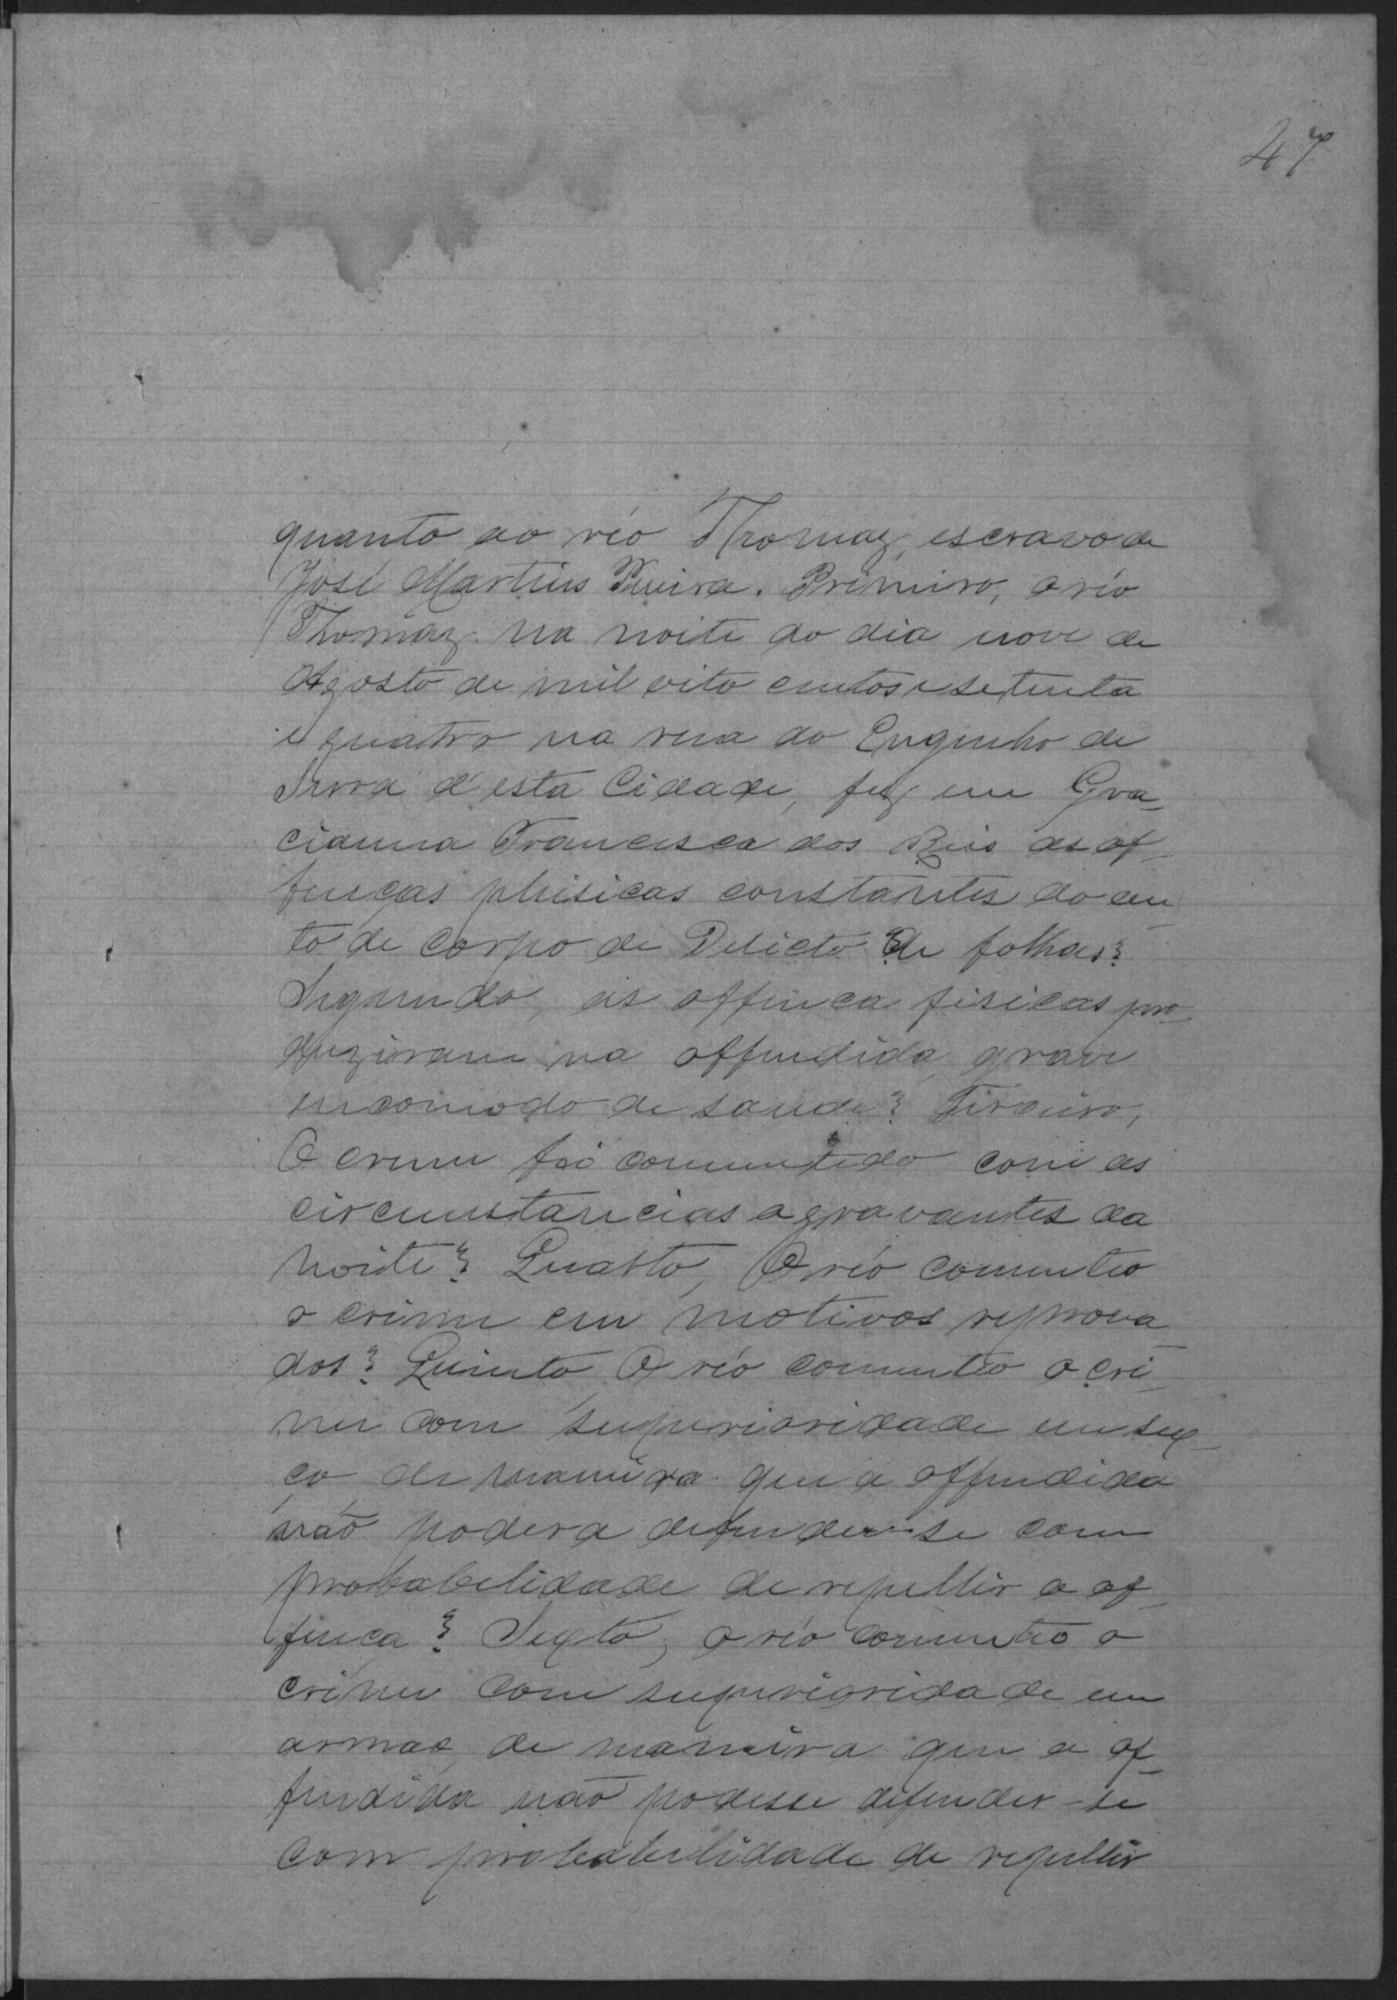 47
quanto ao réo Thomaz, escravo de
José Martins Vieira. Primeiro, o réo
Thomaz na noite do dia nove de
Agosto de mil oito centos e setenta
e quatro na rua do Engenho de
Serra d'esta Cidade, fez em Gra_
cianna Francisca dos Reis as of_
fenças phisicas constantes do au_
to de corpo de Delicto de folhas?
Segundo, as offenca fisicas pro_
duziram na offendida grave
incomodo de saude? Terceiro,
O crime foi commetido com as
circumstancias agravantes da
noite? Quarto, O réo cometteo
o crime em motivos reprova_
dos? Quinto O réo cometteo o cri_
me com superioridade em sex_
ço de maneira que a offendida
não podera defender-se com
probabelidade de repellir a of_
fença? Sexto, o réo cometteo o
crime com superiorida de em
armas, de maneira que a of_
fendida não podesse defender-se
com probabelidade de repellir